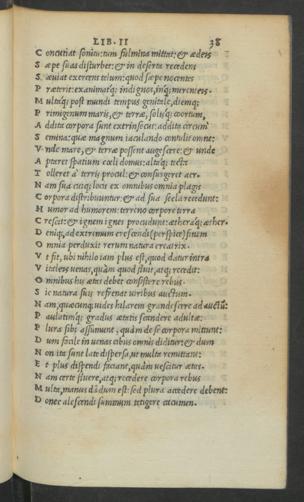 LIB. II 38
C oncutiat sonitu: tum fulmina mittat: & ædeis
S æpe suas disturbet: & in deserta recedens
S æuiat exercens telum: quod sæpe nocentes
P ræterit: exanimatq; indignos, inq; merenteis.
M ultaq; post mundi tempus genitale, diemq;
P rimigenum maris, & terræ, solisq; coortum,
A ddita corpora sunt extrinsecus: addita circum
S emina: quæ magnum iaculando contulit omne:
V nde mare, & terræ possent augescere: & unde
A pteret spatium cœli domus: altaq; tecta
T olleret a' terris procul: & consurgeret aer.
N am sua cuiq; locis ex omnibus omnia plagis
C orpora distribuuntur: & ad sua secla recedunt:
H umor ad humorem: terreno corpore terra
C rescit: & ignem ignes procudunt: ætheraq; æther.
D eniq; ad extremum crescendi (perspice) finem
O mnia perduxit rerum natura creatrix.
V t fit, ubi nihilo iam plus est, quod datur intra
V italeis uenas, quàm quod fluit, atq; recedit:
O mnibus his ætas debet consistere rebus.
S ic natura suis refrenat uiribus auctum.
N am, quæcunq; uides hilarem grandescere ad auctũ:
P aulatimq; gradus ætatis scandere adultæ:
P lura sibi assumunt, quàm de se corpora mittunt:
D um facile in uenas cibus omnis diditur: & dum
N on ita sunt late dispersa, ut multa remittant:
E t plus dispendi faciant, quàm uescitur ætas.
N am certe fluere, atq; recedere corpora rebus
M ulta, manus dãdum est: sed plura accedere debent:
D onec alescendi summum tetigere cacumen.